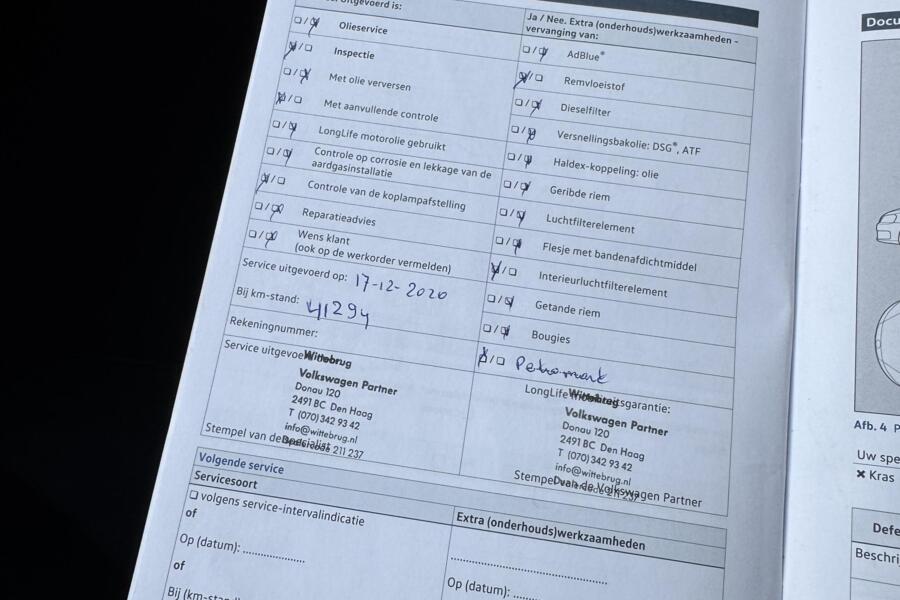 uitgevoerd is:
☐ / ☒ Olieservice
☒ / ☐ Inspectie
☐ / ☒ Met olie verversen
☒ / ☐ Met aanvullende controle
☐ / ☒ LongLife motorolie gebruikt
☐ / ☒ Controle op corrosie en lekkage van de
aardgasinstallatie
☒ / ☐ Controle van de koplampafstelling
☐ / ☒ Reparatieadvies
☐ / ☒ Wens klant
(ook op de werkorder vermelden)
Service uitgevoerd op: 17-12-2020
Bij km-stand: 41294
Rekeningnummer:
Service uitgevoerd
Wittebrug
Volkswagen Partner
Donau 120
2491 BC Den Haag
T (070) 342 93 42
info@wittebrug.nl
211 237
Stempel van de specialist
Ja / Nee. Extra (onderhouds)werkzaamheden -
vervanging van:
☐ / ☒ AdBlue®
☒ / ☐ Remvloeistof
☐ / ☒ Dieselfilter
☐ / ☒ Versnellingsbakolie: DSG®, ATF
☐ / ☒ Haldex-koppeling: olie
☐ / ☒ Geribde riem
☐ / ☒ Luchtfilterelement
☐ / ☒ Flesje met bandenafdichtmiddel
☒ / ☐ Interieurluchtfilterelement
☐ / ☒ Getande riem
☐ / ☒ Bougies
☒ / ☐
LongLife mobiliteitsgarantie:
Wittebrug
Volkswagen Partner
Donau 120
2491 BC Den Haag
T (070) 342 93 42
info@wittebrug.nl
Stempel van de Volkswagen Partner
Volgende service
Servicesoort
☐ volgens service-intervalindicatie
of
Op (datum): ..................
of
Bij (km-stand)
Extra (onderhouds)werkzaamheden
Op (datum):
Docu
Afb. 4
Uw spe
✖ Kras
Defe
Beschrij